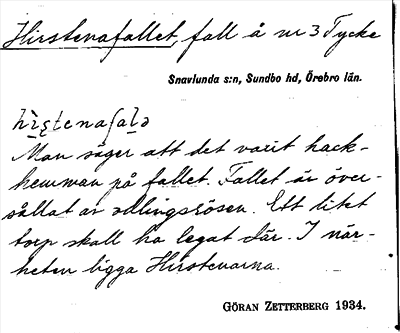 Hirstenafallet, fall å nr 3 Tycke
Snavlunda s:n, Sundbo hd, Örebro län.
Man säger att det varit hack-
hemman på fallet. Fallet är över-
sållat av odlingsrösen. Ett litet
torp skall ha legat där. I när-
heten ligga Hirstenarna.
GÖRAN ZETTERBERG 1934.